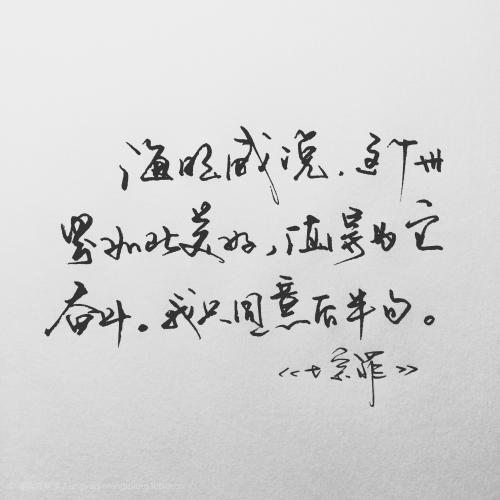 海明威说，这个世
界如此美好，值得为它
奋斗。我只同意后半句。
《七宗罪》